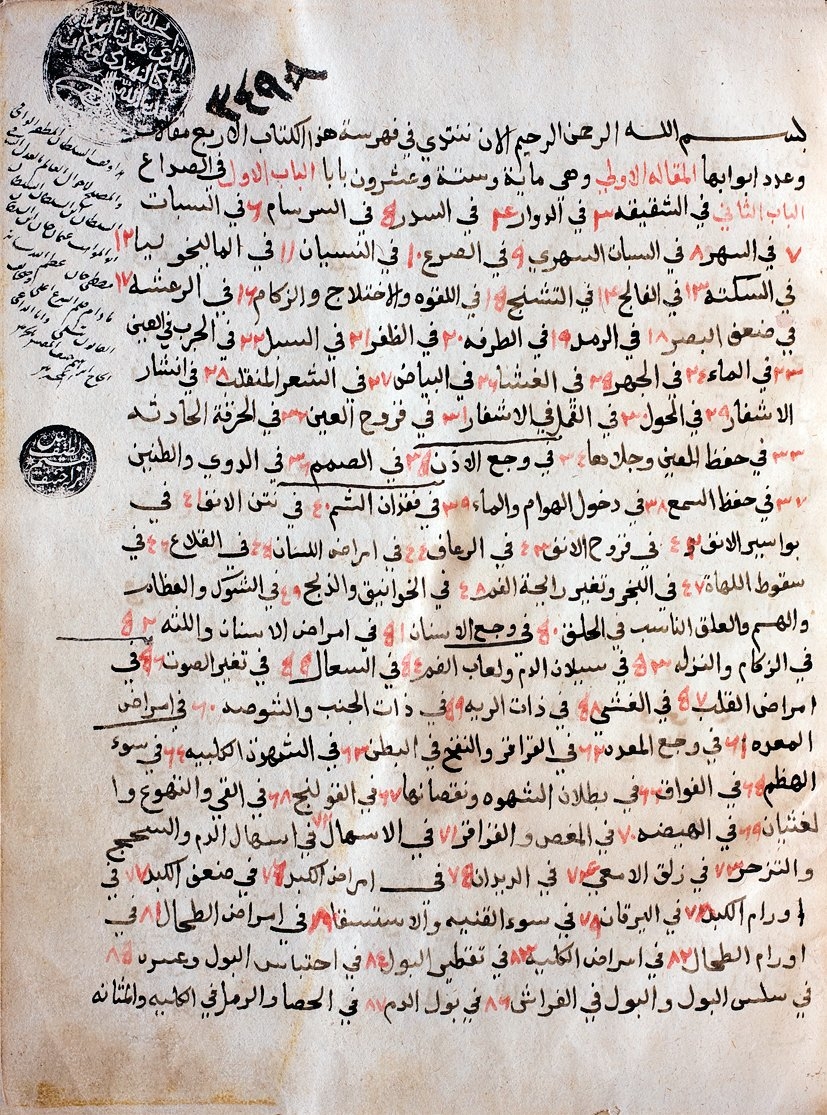 ٣٤٩٠٨
بسم الله الرحمن الرحيم الان نبتدي في فهرسة هذا الكتاب الاربع مقالات
وعدد ابوابها المقاله الاولي وهي ماية وستة وعشرون بابا الباب الاول في الصداع
الباب الثاني في الشقيقه ٣ في الدوار ٤ في السدر ٥ في السرسام ٦ في السبات
٧ في السهر ٨ في السبات السهري ٩ في الصرع ١٠ في النسيان ١١ في الماليخوليا ١٢
في السكتة ١٣ في الفالج ١٤ في التشنج ١٥ في اللقوه والاختلاج والزكام ١٦ في الرعشه ١٧
في ضعف البصر ١٨ في الرمد ١٩ في الطرفه ٢٠ في الظفر ٢١ في السبل ٢٢ في الجرب في العين
٢٣ في الماء ٢٤ في الجهر ٢٥ في الغشا ٢٦ في البياض ٢٧ في الشعر المنقلب ٢٨ في انتشار
الاشفار ٢٩ في الحول ٣٠ في القمل في الاشفار ٣١ في قروح العين ٣٢ في الحرقة الحادثه
٣٣ في حفظ العين وجلاها ٣٤ في وجع الاذن ٣٥ في الصمم ٣٦ في الدوي والطنين
٣٧ في حفظ السمع ٣٨ في دخول الهوام والماء ٣٩ في فقدان الشم ٤٠ في نتن الانف ٤١ في
بواسير الانف ٤٢ في قروح الانف ٤٣ في الرعاف ٤٤ في امراض اللسان ٤٥ في القلاع ٤٦ في
سقوط اللهاة ٤٧ في البخر وتغير رايحة الفم ٤٨ في الخوانيق والذبح ٤٩ في الشوك والعظام
والعلق الناشب في الحلق ٥٠ في وجع الاسنان ٥١ في امراض الاسنان واللثه ٥٢
في الزكام والنزله ٥٣ في سيلان الدم ولعاب الفم ٥٤ في السعال ٥٥ في تغير الصوت ٥٦ في
امراض القلب ٥٧ في الغشي ٥٨ في ذات الريه ٥٩ في ذات الجنب والشوصه ٦٠ في امراض
المعده ٦١ في وجع المعده ٦٢ في القراقر والنفخ في البطن ٦٣ في الشهوة الكلبيه ٦٤ في سوء
الهظم ٦٥ في الفواق ٦٦ في بطلان الشهوه ونقصانها ٦٧ في القولنج ٦٨ في القي والتهوع وا
لغثيان ٦٩ في الهيضه ٧٠ في المغص والقراقر ٧١ في الاسهال ٧٢ في اسهال الدم والسحج
والتزحر ٧٣ في زلق الامعي ٧٤ في الديدان ٧٥ في امراض الكبد ٧٦ في ضعف الكبد ٧٧ في
اورام الكبد ٧٨ في اليرقان ٧٩ في سوء القنيه والاستسقا ٨٠ في امراض الطحال ٨١ في
اورام الطحال ٨٢ في امراض الكليه ٨٣ في تقطير البول ٨٤ في احتباس البول وعسره ٨٥
في سلس البول والبول في الفراش ٨٦ في بول الدم ٨٧ في الحصا والرمل في الكليه والمثانه